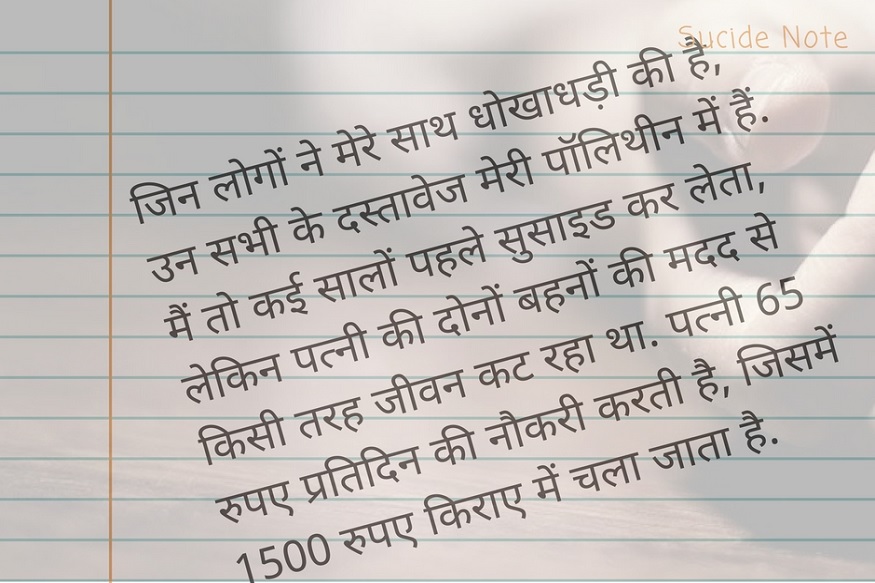 Sucide Note
जिन लोगों ने मेरे साथ धोखाधड़ी की है,
उन सभी के दस्तावेज मेरी पॉलिथीन में हैं.
मैं तो कई सालों पहले सुसाइड कर लेता,
लेकिन पत्नी की दोनों बहनों की मदद से
किसी तरह जीवन कट रहा था. पत्नी 65
रुपए प्रतिदिन की नौकरी करती है, जिसमें
1500 रुपए किराए में चला जाता है.